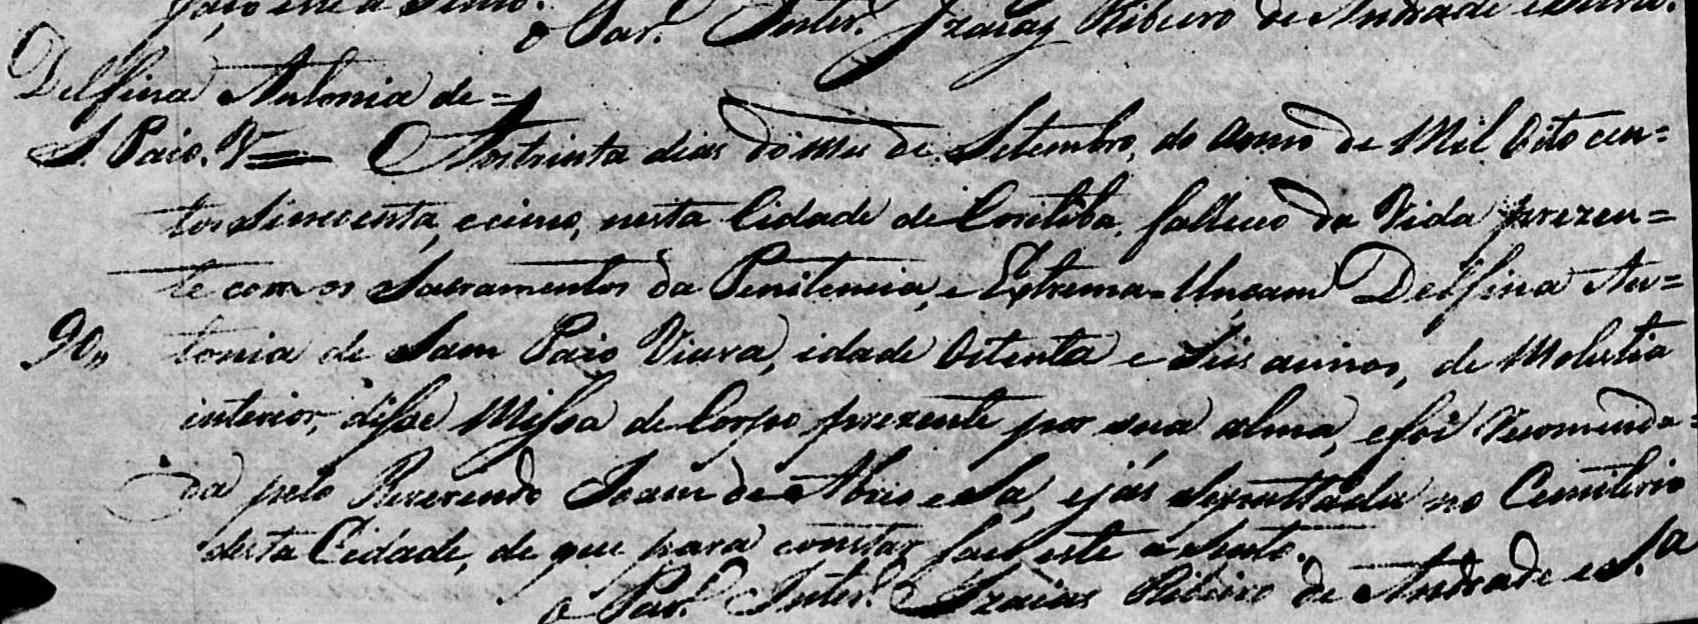 faço este a Sento.
o Par. Inter. Izaias Ribeiro de Andrade e Silva.
Delfina Antonia de=
S. Paio. Vª Aostrinta dias do mes de Setembro, do anno de Mil Oito cen=
tos Sincoenta, e cinco, nesta Cidade de Coritiba, falleceo da Vida prezen=
te com os Sacramentos da Penitencia, e Extrema=Unçam Delfina An=
90,, tonia de Sam Paio Viuva, idade Oitenta e Seis annos, de Molestia
interior, disse Missa de Corpo prezente por sua alma, e foi Recomenda=
da pelo Reverendo Joam de Abreo e Sá, e jás Sepultada no Cemiterio
desta Cidade, de que para constar faço este a Sento.
o Par. Inter. Izaias Ribeiro de Andrade e S.ª